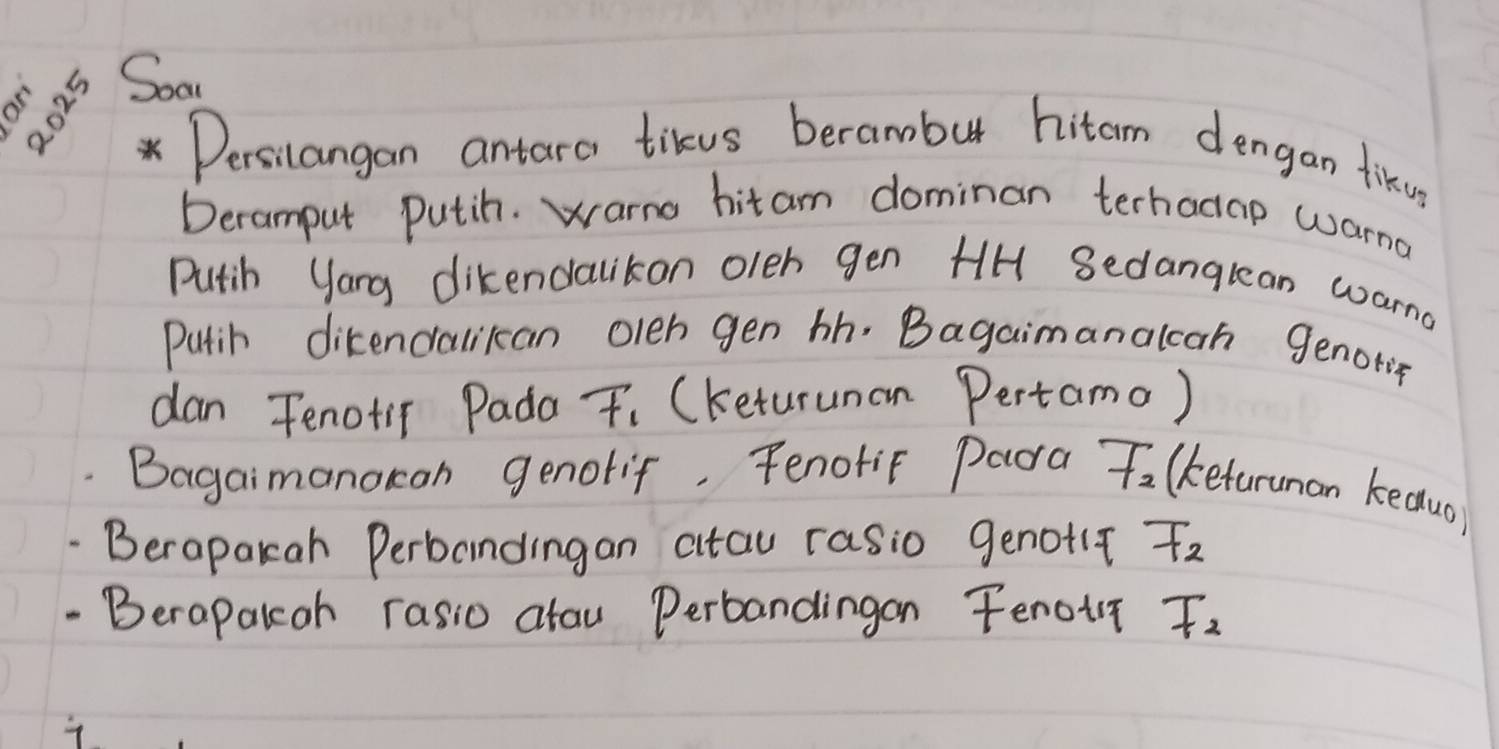 2025
Soal
* Persilangan antara tikus berambut hitam dengan tikus
beramput putih. warna hitam dominan terhadap warna
Putih yang dikendalikan oleh gen HH Sedangkan warna
Putih dikendalikan oleh gen hh. Bagaimanakah genotif
dan Fenotif Pada F1 (keturunan Pertama)
. Bagaimanakah genotif, Fenotif pada F2 (keturunan kedua)
- Berapakah Perbandingan atau rasio genotif F2
- Berapakah rasio atau Perbandingan Fenotif F2